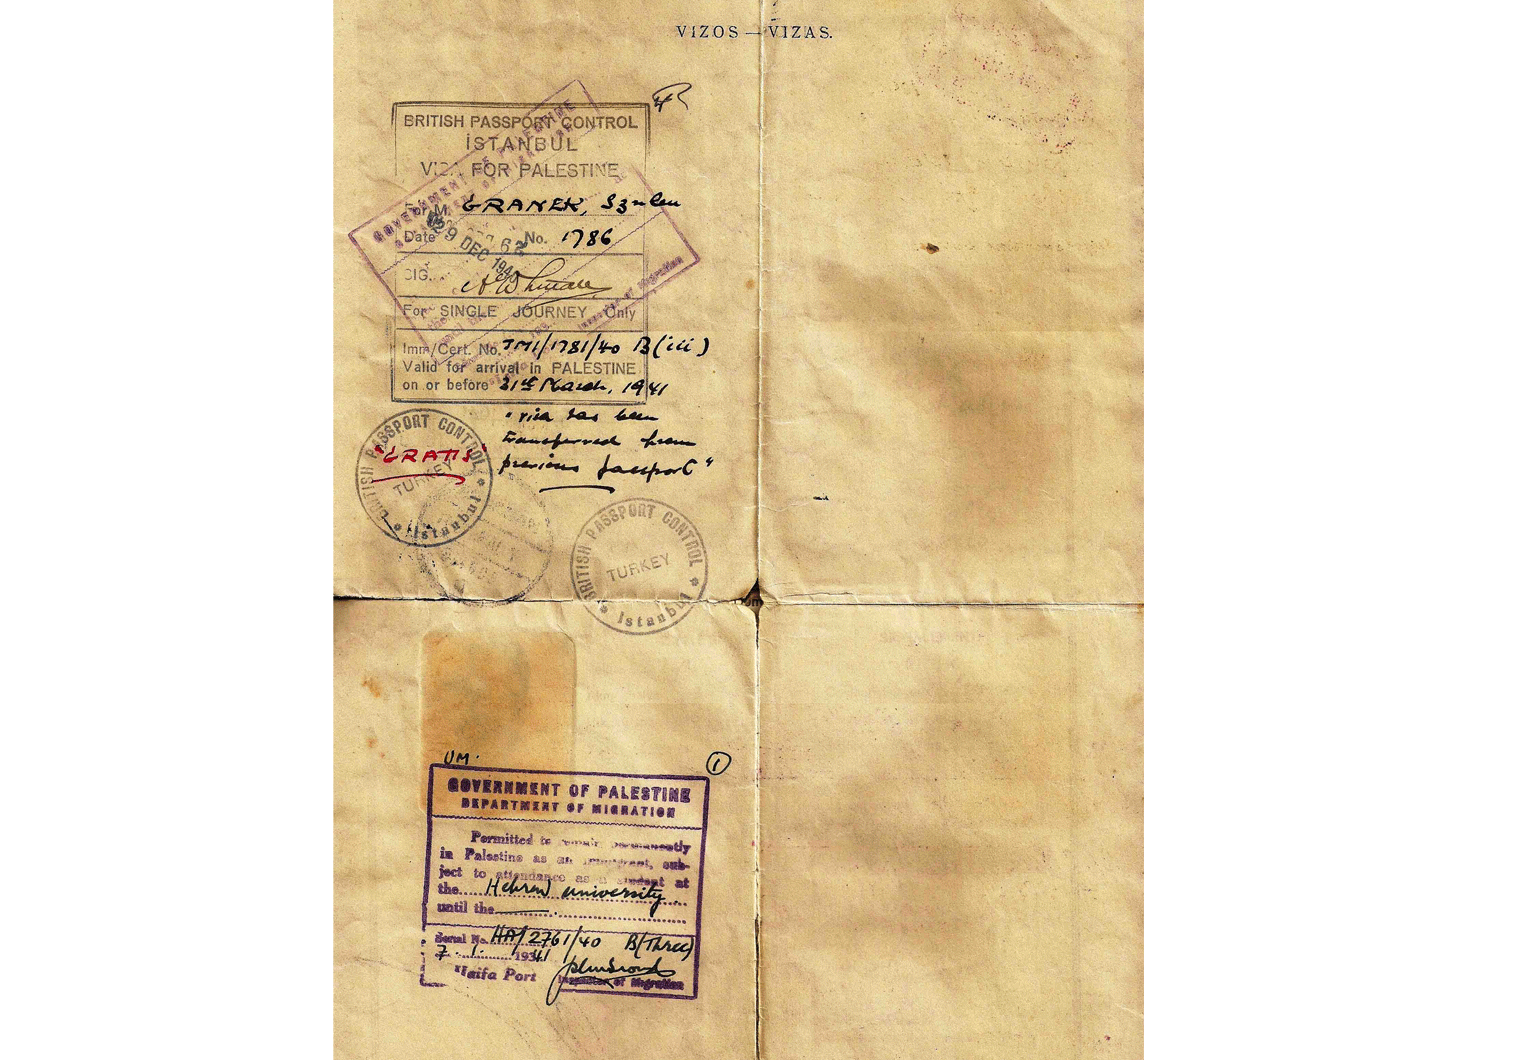 VIZOS — VIZAS.
BRITISH PASSPORT CONTROL
İSTANBUL
VISA FOR PALESTINE
For M. GRANEK, Szulem
Date 9 DEC 194 No. 1786
SIG.
For SINGLE JOURNEY Only
Imm/Cert. No. JM1/1781/40 B(iii)
Valid for arrival in PALESTINE
on or before 31st March, 1941
"visa has been
transferred from
previous passport"
GOVERNMENT OF PALESTINE
Inspector of Migration
BRITISH PASSPORT CONTROL
"GRATIS"
TURKEY
* Istanbul *
BRITISH PASSPORT CONTROL
TURKEY
* Istanbul *
UM.
1
GOVERNMENT OF PALESTINE
DEPARTMENT OF MIGRATION
Permitted to remain permanently
in Palestine as an immigrant, sub-
ject to attendance as a student at
the Hebrew university
until the
Serial No. HA/2761/40 B(Three)
7. 1. 1941
Haifa Port
Inspector of Migration